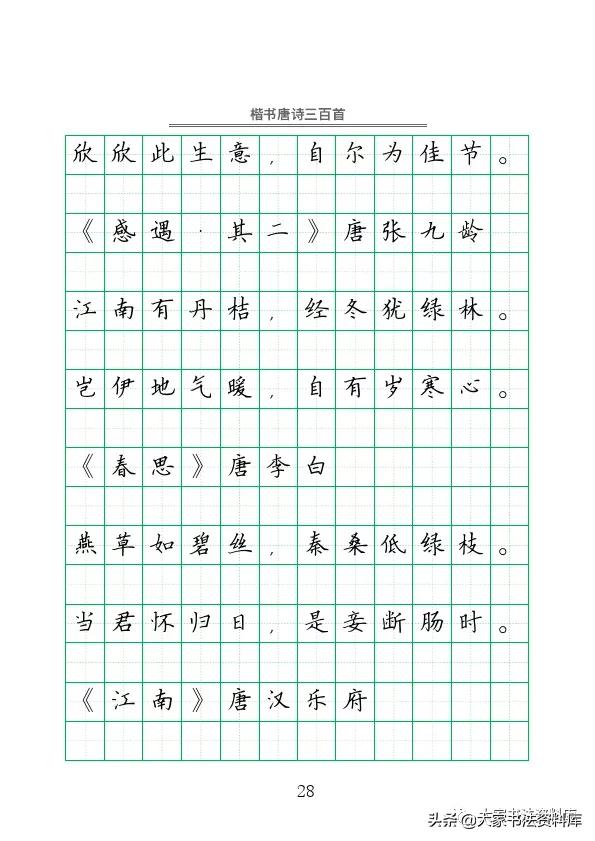 楷书唐诗三百首
欣欣此生意，自尔为佳节。
《感遇·其二》唐张九龄
江南有丹桔，经冬犹绿林。
岂伊地气暖，自有岁寒心。
《春思》唐李白
燕草如碧丝，秦桑低绿枝。
当君怀归日，是妾断肠时。
《江南》唐汉乐府
28
大家书法资料库
头条@大家书法资料库